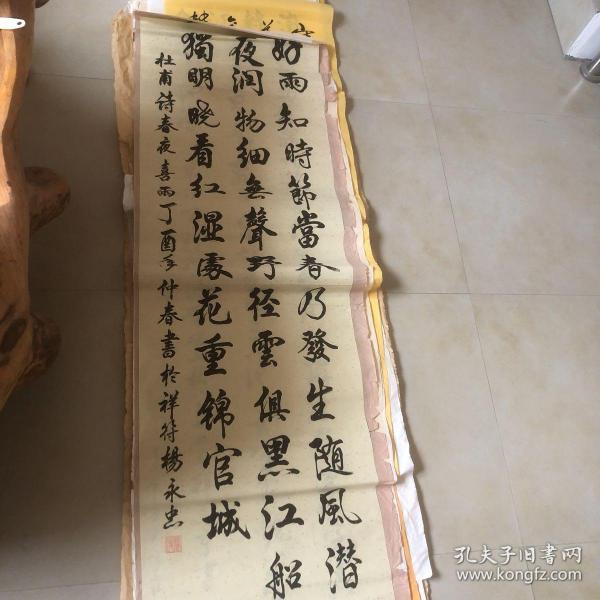 好雨知時節當春乃發生随風潜
夜润物细無聲野径雲俱黑江船
獨明晓看红湿處花重锦官城
杜甫诗春夜喜雨丁酉年仲春書於祥符楊永忠
孔夫子旧書网
www.kongfz.com